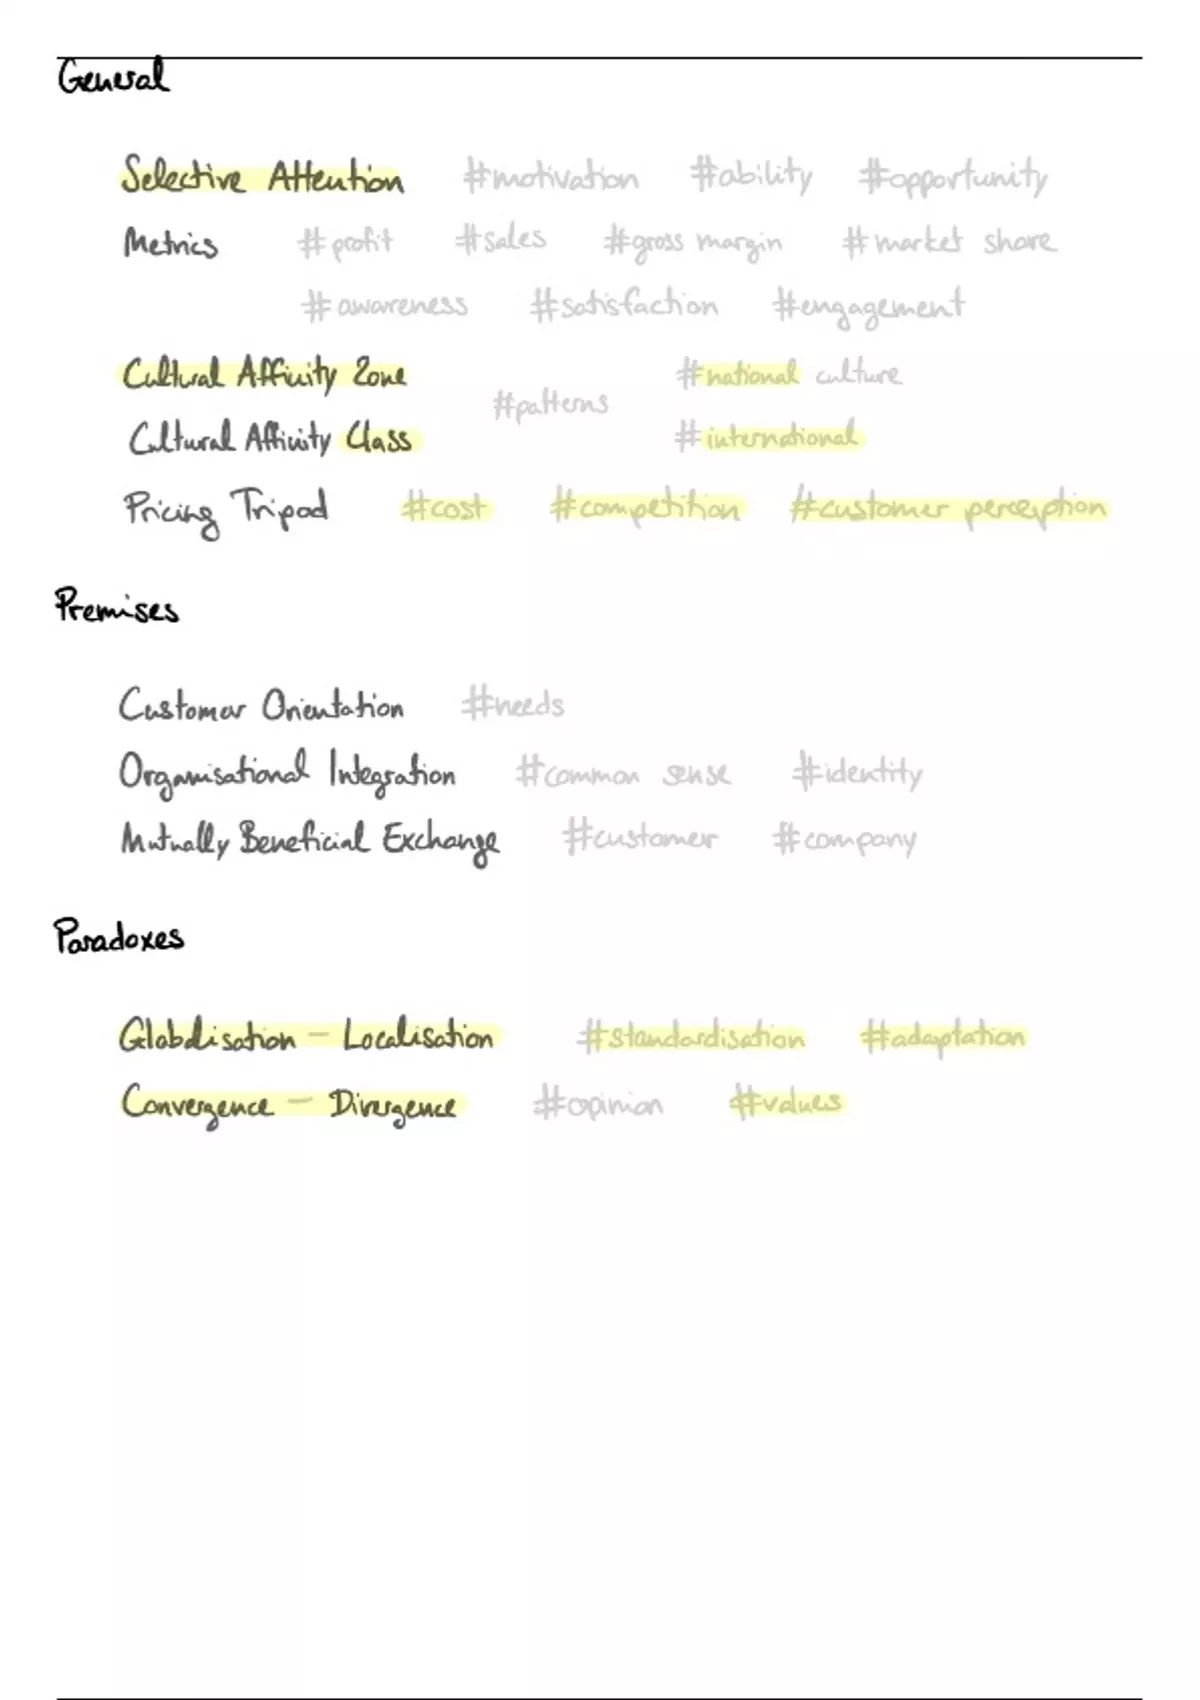 General
Selective Attention #motivation #ability #opportunity
Metrics #profit #sales #gross margin #market share
#awareness #satisfaction #engagement
Cultural Affinity Zone #national culture
#patterns
Cultural Affinity Class #international
Pricing Tripod #cost #competition #customer perception
Premises
Customer Orientation #needs
Organisational Integration #common sense #identity
Mutually Beneficial Exchange #customer #company
Paradoxes
Globalisation – Localisation #standardisation #adaptation
Convergence – Divergence #opinion #values